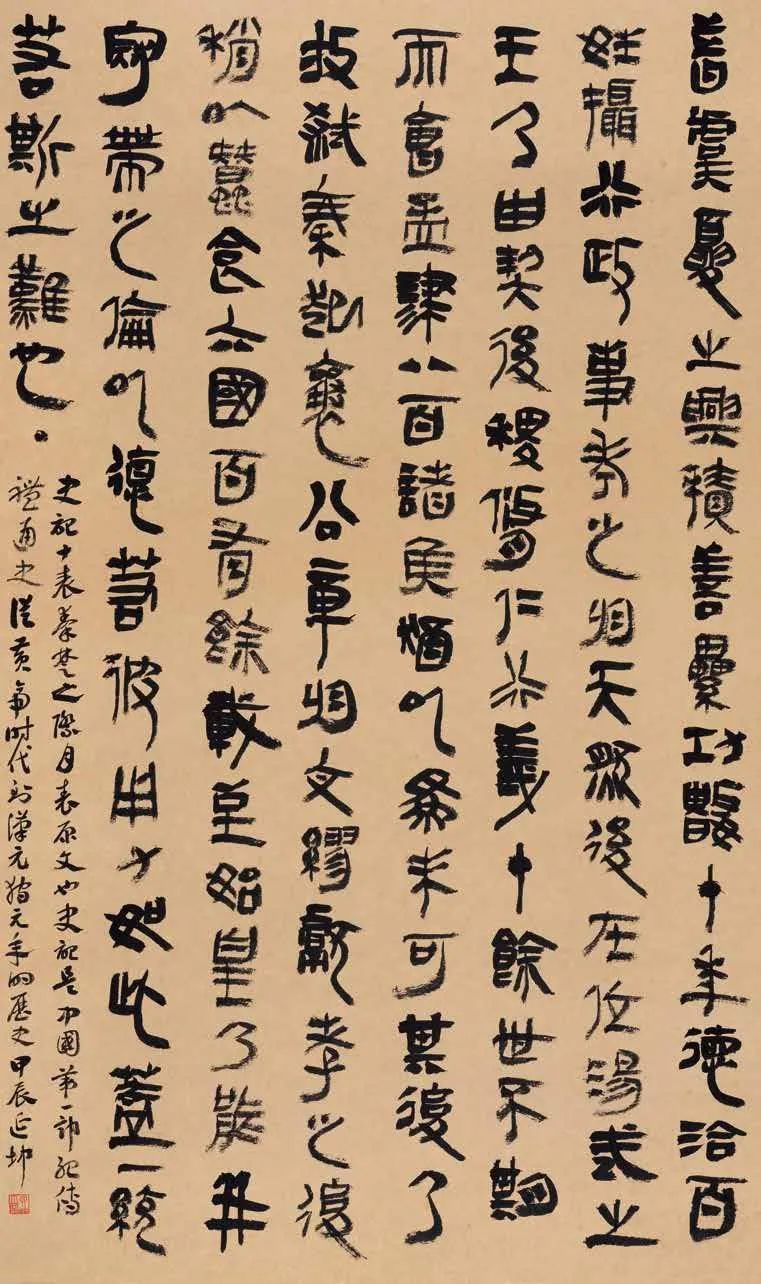 昔虞夏之興積善纍功數十年德洽百
姓攝行政事考之於天然後在位湯武之
王乃由契後稷脩仁行義十餘世不期
而會孟津八百諸侯猶以為未可其後乃
放弒秦起襄公章於文繆獻孝之後
稍以蠶食六國百有餘載至始皇乃能并
冠帶之倫以德若彼用力如此蓋一統
若斯之難也。
史記十表秦楚之際月表原文也史記是中國第一部記傳
體通史從黃帝时代到漢元狩元年的歷史甲辰延坤